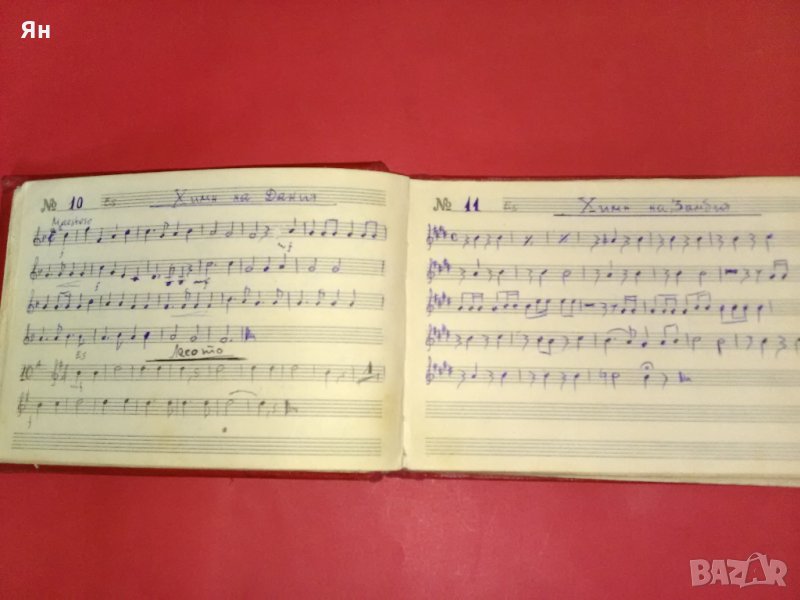 Ян
№ 10 Es Химн на Дания
Maestoso
f
mf
f
mf
Es Лесото
10ª
mf
f
№ 11 Es Химн на Замбия
BAZAR